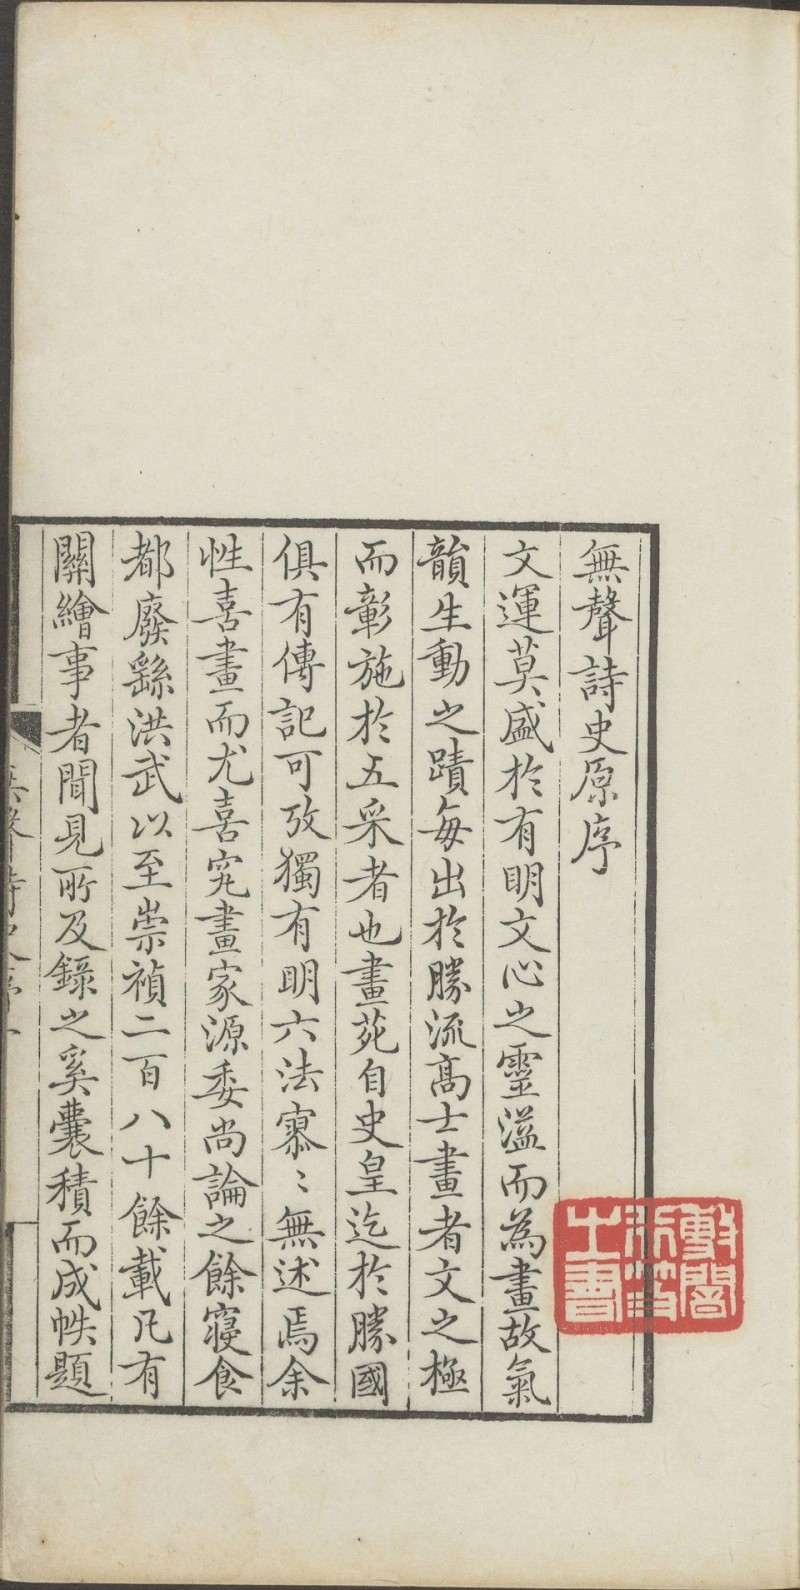 無聲詩史原序
文運莫盛於有明文心之靈溢而為畫故氣
韻生動之蹟每出於勝流高士畫者文之極
而彰施於五采者也畫苑自史皇迄於勝國
俱有傳記可攷獨有明六法寥〻無述焉余
性喜畫而尤喜究畫家源委尚論之餘寢食
都廢繇洪武以至崇禎二百八十餘載凡有
關繪事者聞見所及錄之奚囊積而成帙題